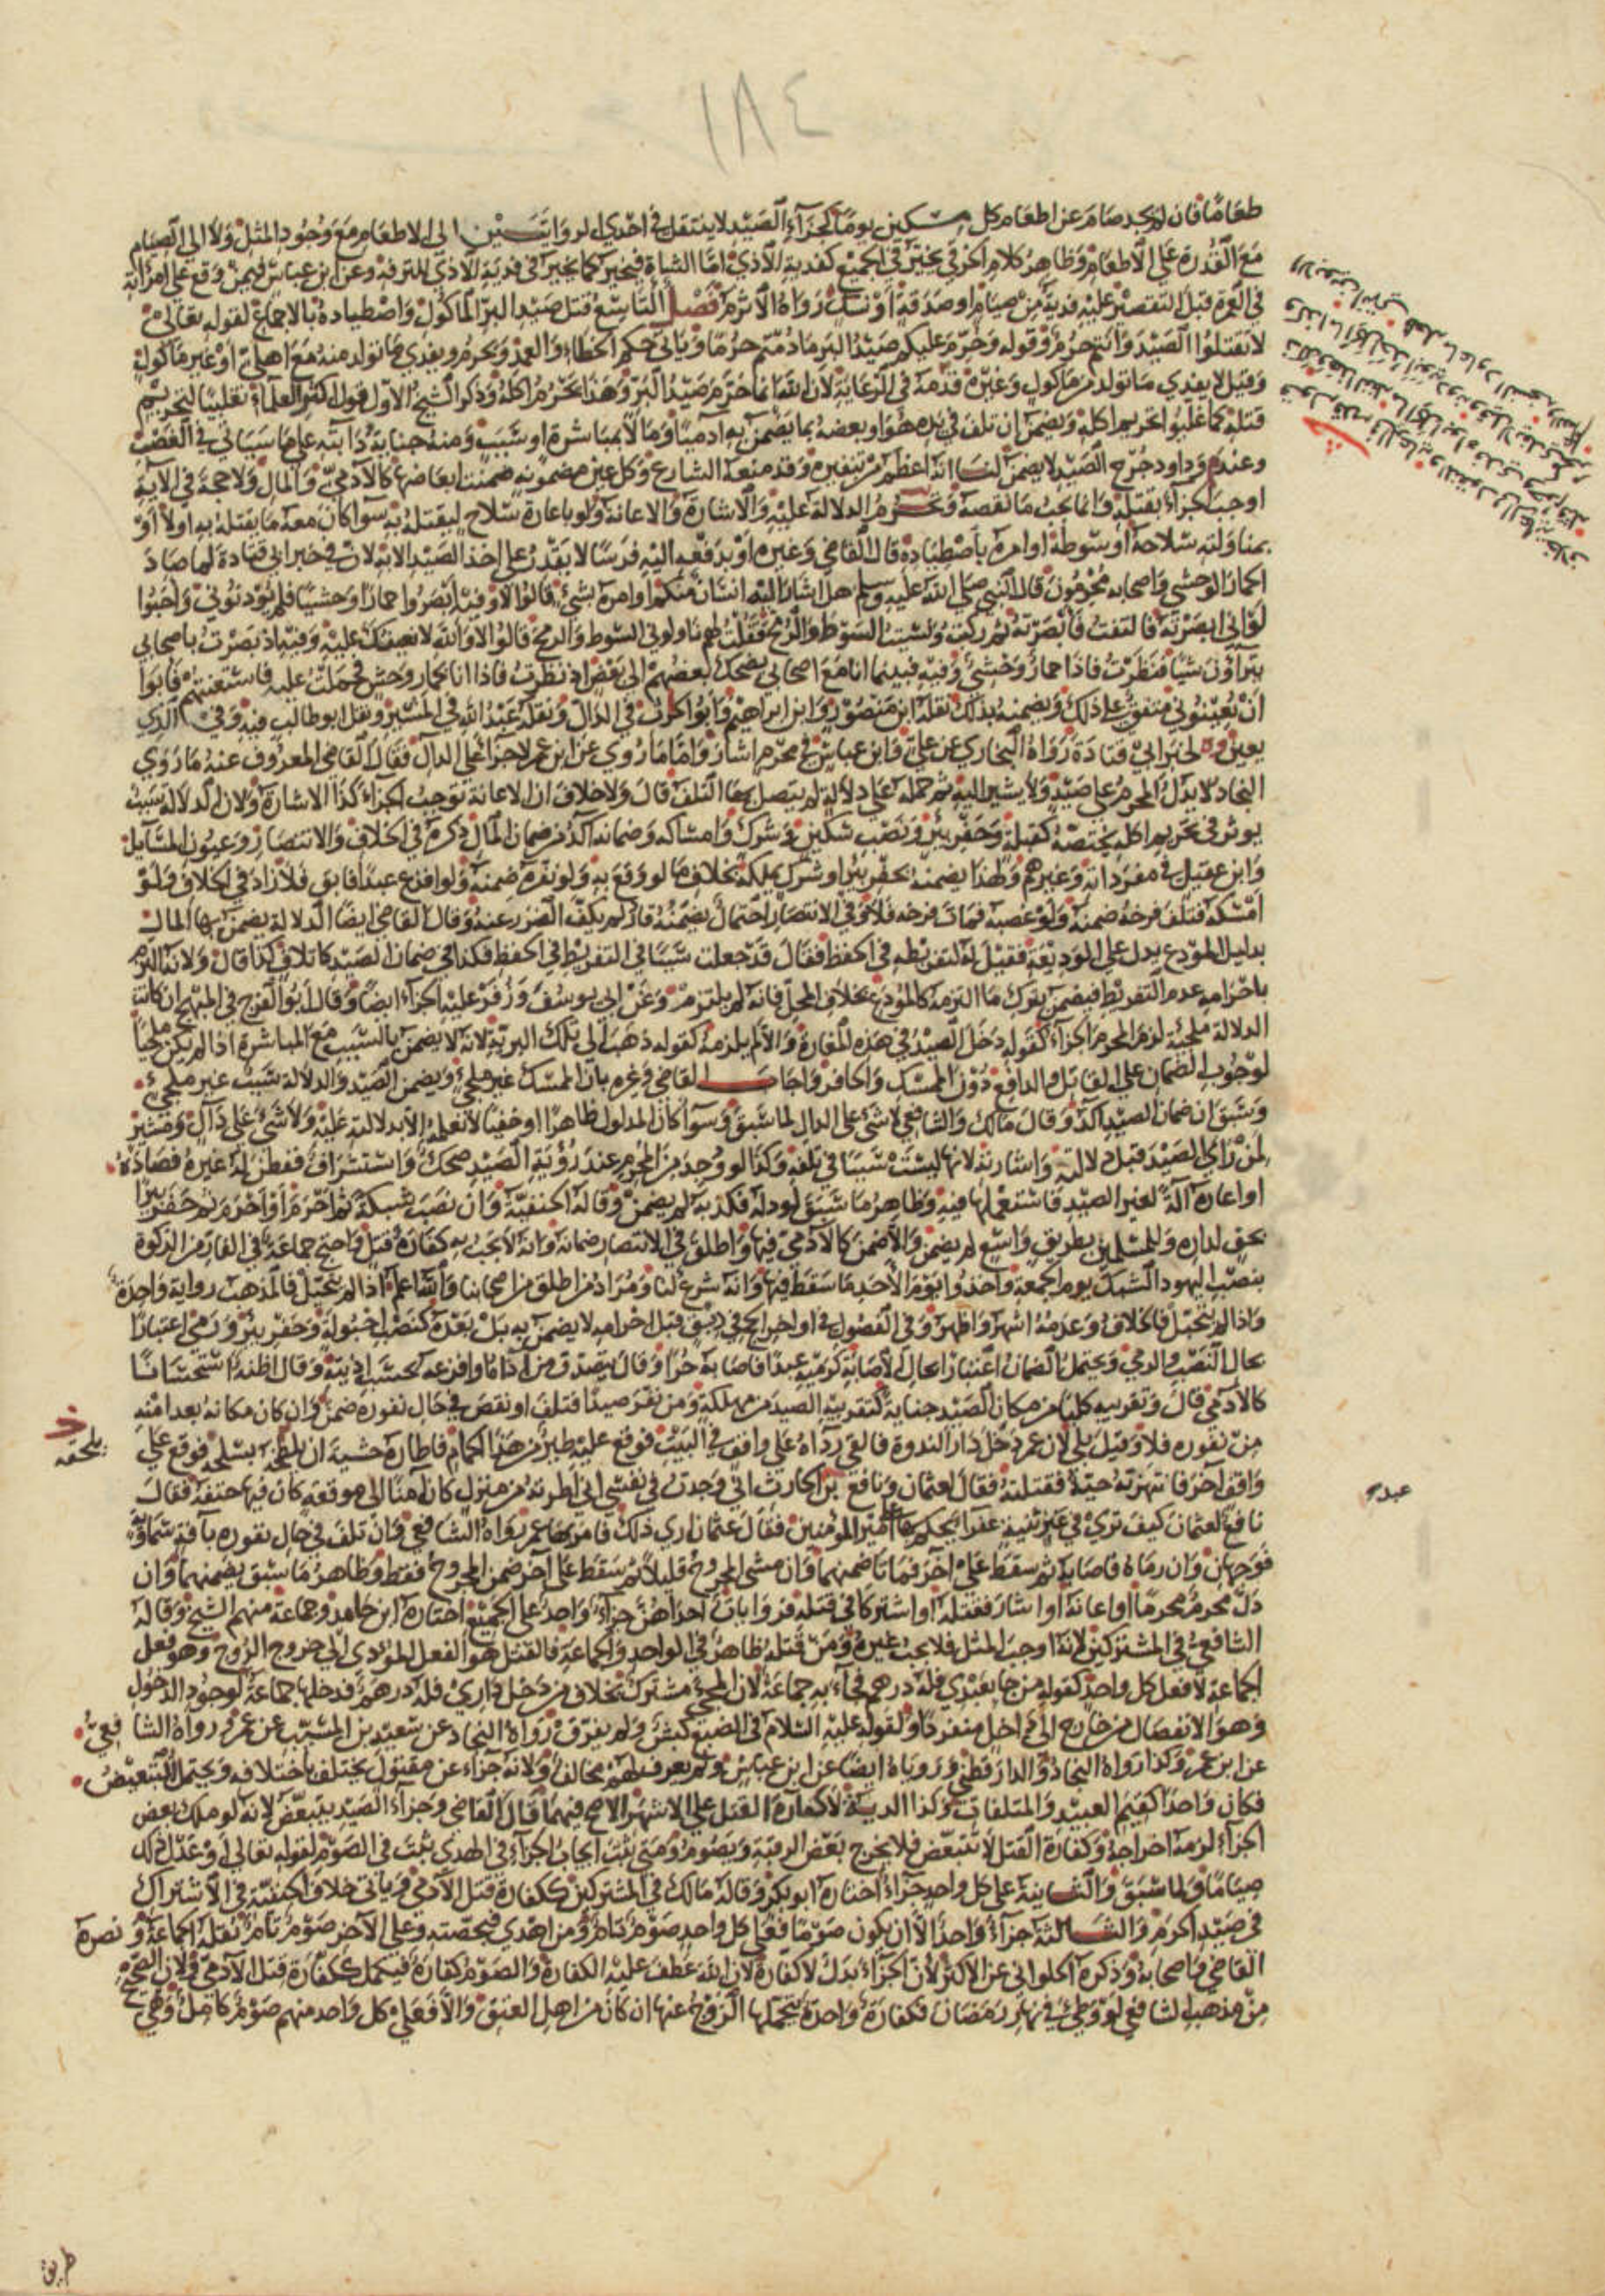 ١٨٤
طعامًا فان لم يجد صام عن اطعام كل مسكين يومًا كجزآء الصيد لا ينتقل في احدى الروايتين الى الاطعام مع وجود المثل ولا الى الصيام
مع القدرة على الاطعام وظاهر كلام الخرقي يخير في الجميع كفدية الاذى اما الشاة فيخير كما يخير في فدية الاذى للترفه وعن ابن عباس فيمن وقع على امرأته
في العمرة قبل التقصير عليه فدية من صيام او صدقة او نسك رواه الاثرم فصل التاسع قتل صيد البر المأكول واصطياده بالاجماع لقوله تعالى
لا تقتلوا الصيد وانتم حرم وقوله وحرم عليكم صيد البر ما دمتم حرمًا ويأتي حكم الخطاء والعمد ويحرم ويفدي ما تولد منه مع اهلي او غير مأكول
وقيل لا يفدي ما تولد من مأكول وغيره قدمه في الرعاية لان الله انما حرم صيد البر وهذا يحرم اكله وذكر الشيخ الاول قول اكثر العلماء تغليبًا لتحريم
قتله كما غلبوا تحريم اكله ويضمن ان تلف في يده هو او بعضه بما يضمن به ادميًا ومالاً بمباشرة او سبب ومنه جناية دابته على ما سيأتي في الغصب
وعند داود جرح الصيد لا يضمن لنا انه اعظم من تنفيره وقد منعه الشارع وكل عين مضمونة ضمنت ابعاضها كالآدمي والمال ولا حجة في الآية
اوجب الجزاء بقتله وانما يجب ما نقصه وتحرم الدلالة عليه والاشارة والاعانة ولو باعارة سلاح ليقتله به سوا كان معه ما يقتله به اولا او
بمناولته سلاحه او سوطه او امره باصطياده قال القاضي وغيره او بدفعه اليه فرسًا لا يقدر على اخذ الصيد الا به لان في خبر ابي قتادة لما صاد
الحمار الوحشي واصحابه محرمون قال النبي صلى الله عليه وسلم هل اشار اليه انسان منكم او امره بشئ قالوا لا وفيه ابصروا حمارًا وحشيًا فلم يؤذنوني واحبوا
لو اني ابصرته فالتفت فابصرته ثم ركبت ونسيت السوط والرمح فقلت لهم ناولوني السوط والرمح قالوا لا والله لا نعينك عليه وفيه اذ بصرت باصحابي
يتراؤن شيئا فنظرت فاذا حمار وحشي وفيه فبينما انا مع اصحابي يضحك بعضهم الى بعض اذ نظرت فاذا انا بحمار وحش فحملت عليه فاستعنتهم فابوا
ان يعينوني متفق على ذلك ويضمنه بذلك نقله ابن منصور وابن ابراهيم وابو الحرث في الدال ونقله عبد الله في المشير ونقل ابو طالب فيه وفي الذي
يعين لخبر ابي قتادة رواه النجاد عن علي وابن عباس في محرم اشار واما ما روي عن ابن عمر لا جزآ على الدال فقال القاضي المعروف عنه ما روى
النجاد لا يدل المحرم على صيد ولا يشير اليه ثم حمله على دلالة لم يتصل بها التلف قال ولا خلاف ان الاعانة توجب الجزاء كذا الاشارة ولان الدلالة سبب
يوثر في تحريم اكله يختصه كقتله وحفر بئر ونصب سكين وشرك وامساكه وضمانه آكد من ضمان المال ذكره في الخلاف والانتصار وعيون المسآيل
وابن عقيل في مفرداته وغيرهم ولهذا يضمنه بحفر بئر او شرك بملكه بخلاف ما لو وقع به ولو نفره ضمنه ولو افزع عبدًا فابق فلا زاد في الخلاف ولو
امسكه فتلف فرخه ضمنه ولو غصبه فمات فرخه فلا وفي الانتصار احتمال يضمنه فان لم يكف الضرر عنه وقال القاضي ايضًا الدلالة يضمن بها المال
بدليل المودع يدل على الوديعة فقيل له لتفريطه في الحفظ فقال قد جعلت سببًا في التفريط في الحفظ فكذا في ضمان الصيد كاتلاف كذا قال ولانه التزم
باحرامه عدم التفريط فيضمن بترك ما التزمه كالمودع بخلاف المحل فانه لم يلتزم وعن ابي يوسف وزفر عليه الجزآء ايضًا وقال ابو الفرج في المبهج ان كانت
الدلالة ملجئة لزم المحرم الجزآء كقوله دخل الصيد في هذه المغارة والا لم يلزمه كقوله ذهب الى تلك البرية لانه لا يضمن بالسبب مع المباشرة اذا لم يكن ملجيًا
لوجوب الضمان على القاتل والدافع دون الممسك والحافر واجاب القاضي وغيره بان الممسك غير ملجئ ويضمن الصيد والدلالة سبب غير ملجئ
وسبق ان ضمان الصيد آكد وقال مالك والشافعي لا شئ على الدال لما سبق وسوآ كان المدلول ظاهرًا او خفيًا لا نعلمه الا بدلالته عليه ولا شئ على دآل ومشير
لمن رأى الصيد قبل دلالته واشارته لانها ليست سببًا في تلفه وكذا لو وجد من المحرم عند رؤية الصيد ضحك واستشراف ففطن له غيره فصاده
او اعاره آلة لغير الصيد فاستعملها فيه وظاهر ما سبق لو دله فكذبه لم يضمن وقاله الحنفية وان نصب شبكة ثم احرم او احرم ثم حفر بئرا
بحق لداره وللمسلمين بطريق واسع لم يضمن والا ضمن كالآدمي فيها واطلق في الانتصار ضمانه وانه لا يجب به كفارة قتل واحتج جماعة في الفار من الزكوة
بنصب اليهود الشبك يوم الجمعة واخذوا يوم الاحد ما سقط فيها وانه شرع لنا ومراد من اطلق من اصحابنا والله اعلم اذا لم يتحيل فالمذهب رواية واحدة
واذا لم يتحيل فالخلاف وعدمه اشهر واظهر وفي الفصول في اواخر الحج في دبق قبل احرامه لا يضمن به بل بعده كنصب احبولة وحفر بئر ورمي اعتبارًا
بحال النصب والرمي ويحتمل الضمان اعتبارًا بحال الاصابة كرميه عبدًا فاصابه حرًا وقال يتصدق من آذاه او افزعه بحسب اذيته وقال اظنه استحسانا
كالآدمي قال وتقريبه كلبًا من مكان الصيد جناية كتقريبه الصيد من مهلكة ومن نفر صيدًا فتلف او نقص في حال نفوره ضمن وان كان مكانه بعد امنه
من نفوره فلا وقيل بلى لان عمر دخل دار الندوة فالقى ردآه على واقف في البيت فوقع عليه طير من هذا الحمام فاطاره خشية ان يلطخه بسلحه فوقع على
واقف آخر فانتهزته حية فقتلته فقال لعثمان ونافع بن الحارث اني وجدت في نفسي اني اطرته من منزل كان آمنًا الى موقعه كان فيها حتفه فقال
نافع لعثمان كيف ترى في عنز ثنية عفرا يحكم بها على امير المؤمنين فقال عثمان ارى ذلك فامر بها عمر رواه الشافعي فان تلف في حال نفوره بآفة سماوية
فوجهان وان رماه فاصابه ثم سقط على آخر فماتا ضمنهما وان مشى المجروح قليلاً ثم سقط على آخر ضمن المجروح فقط وظاهر ما سبق يضمنهما وان
دل محرم محرمًا او اعانه او اشار فقتله او اشتركا في قتله فروايات احداهن جزآء واحد على الجميع اختاره ابن حامد وجماعة منهم الشيخ وقاله
الشافعي في المشتركين لانه اوجب المثل فلا يجب غيره ومن قتله ظاهر في الواحد والجماعة فالقتل هو الفعل المؤدي الى خروج الروح وهو فعل
الجماعة لا فعل كل واحد كقوله من جا بعبدي فله درهم فجآء به جماعة لان المجئ مشترك بخلاف من دخل داري فله درهم فدخلها جماعة لوجود الدخول
وهو الانفصال من خارج الى داخل منفردًا ولقوله عليه السلام في الضبع كبش ولم يفرق رواه النجاد عن سعيد بن المسيب عن عمر رواه الشافعي
عن ابن عمر وكذا رواه النجاد والدارقطني وروياه ايضًا عن ابن عباس ولم يعرف لهم مخالف ولانه جزآء عن مقتول يختلف باختلافه ويحتمل التبعيض
فكان واحدًا كقيم العبيد والمتلفات وكذا الدية لا كفارة القتل على الاشهر الاصح فيهما قال القاضي وجزاء الصيد يتبعض لانه لو ملك بعض
الجزآء لزمه اخراجه وكفارة القتل لا تتبعض فلا يخرج بعض الرقبة ويصوم ومتى ثبت ايجاب الجزآء في الهدي ثبت في الصوم لقوله تعالى او عدل ذلك
صيامًا ولما سبق والثانية على كل واحد جزآء اختاره ابو بكر وقاله مالك في المشتركين ككفارة قتل الآدمي ويأتي خلاف الحنفية في الاشتراك
في صيد الحرم والثالثة جزآء واحد الا ان يكون صومًا فعلى كل واحد صوم تام ومن اهدى فبحصته وعلى الآخر صوم تام نقله الجماعة ونصره
القاضي واصحابه وذكره الحلواني عن الاكثر لان الجزآء بدل لا كفارة لان الله عطف عليه الكفارة والصوم كفارة فيكمل ككفارة قتل الآدمي ولان الصحيح
من مذهب الشافعي لو وطئ في نهار رمضان فكفارة واحدة يتحملها الزوج عنها ان كان من اهل العتق والا فعلى كل واحد منهم صوم كامل وهي
بلحقه
عبده
طريق